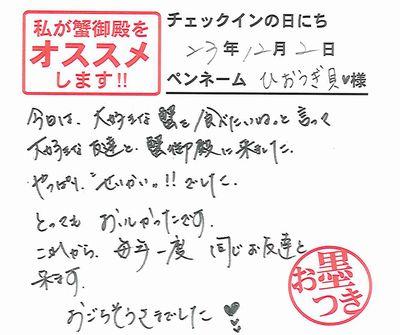 私が蟹御殿を
オススメ
します!!
チェックインの日にち
23年12月2日
ペンネーム ひおうぎ貝♥様
今日は、大好きな蟹を食べたいねっと言って
大好きな友達と、蟹御殿に来ました。
やっぱり、"せいかい"!!でした。
とっても おいしかったです。
これから、毎年一度 同じお友達と
来ます。
おごちそうさまでした♥♥
お墨つき